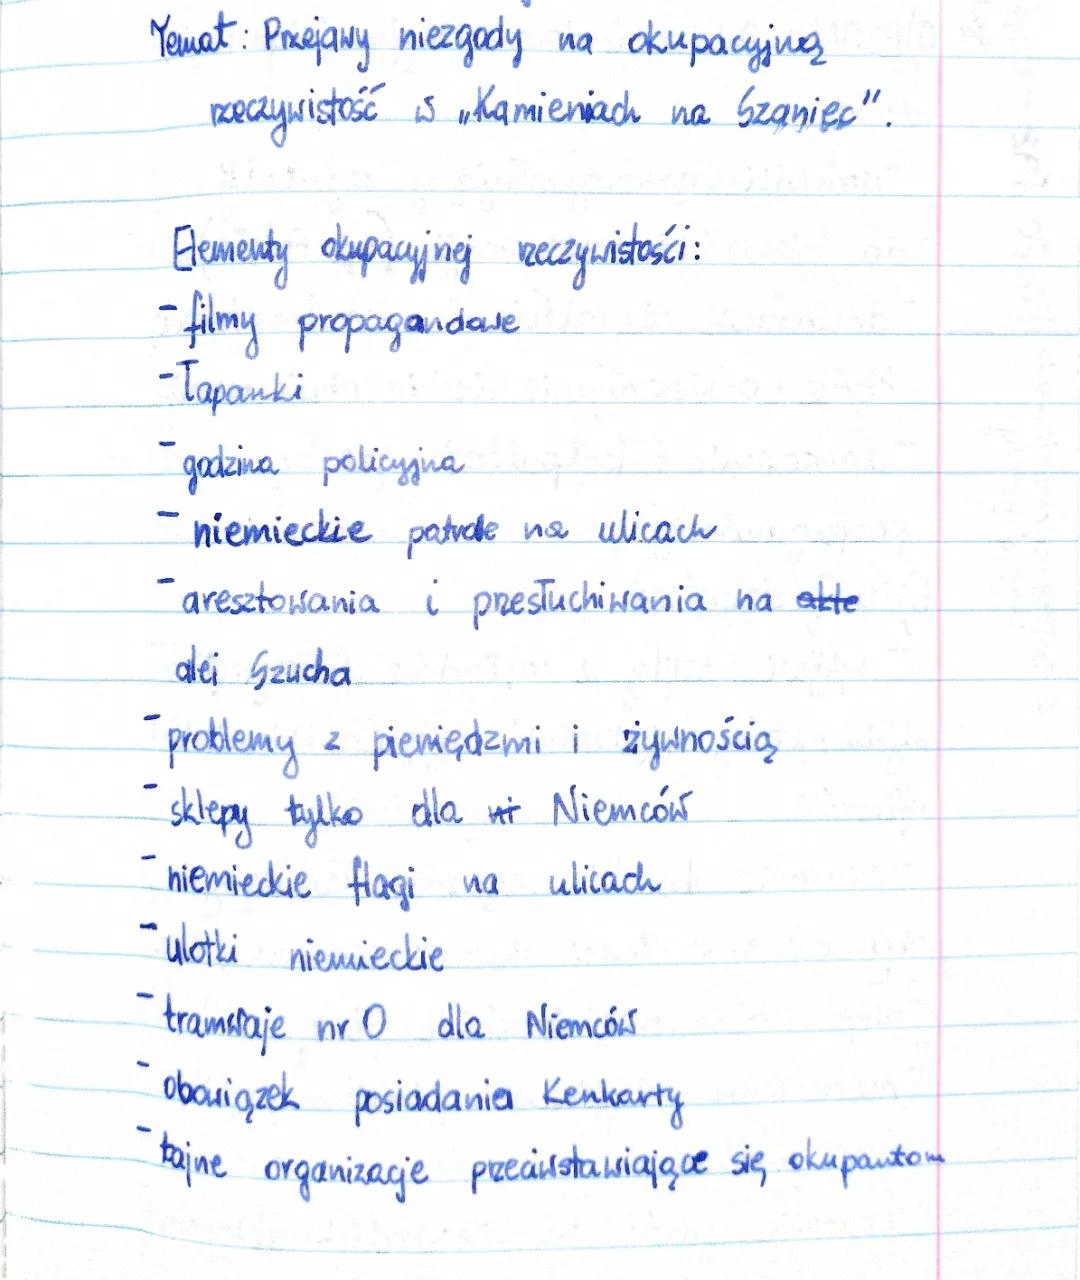 Temat: Przejawy niezgody na okupacyjną
rzeczywistość w „Kamieniach na Szaniec".
Elementy okupacyjnej rzeczywistości:
- filmy propagandowe
- łapanki
- godzina policyjna
- niemieckie patrole na ulicach
- aresztowania i przesłuchiwania na
alei Szucha
- problemy z pieniędzmi i żywnością
- sklepy tylko dla Niemców
- niemieckie flagi na ulicach
- ulotki niemieckie
- tramwaje nr 0 dla Niemców
- obowiązek posiadania Kenkarty
- tajne organizacje przeciwstawiające się okupantom